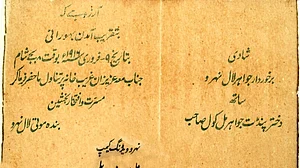 آرزو ہے کہ
بتقریب آمدن بہو رانی
بتاریخ ۹ فروری ۱۹۱۶ء بوقت بجے شام
جناب معہ عزیزان غریب خانہ پر تناول ماحضر فرما کر
مسرت و افتخار بخشیں
بندہ موتی لال نہرو
نہرو ویڈنگ کیمپ
شادی
برخوردار جواہر لال نہرو
ساتھ
دختر پنڈت جواہر مل کول صاحب